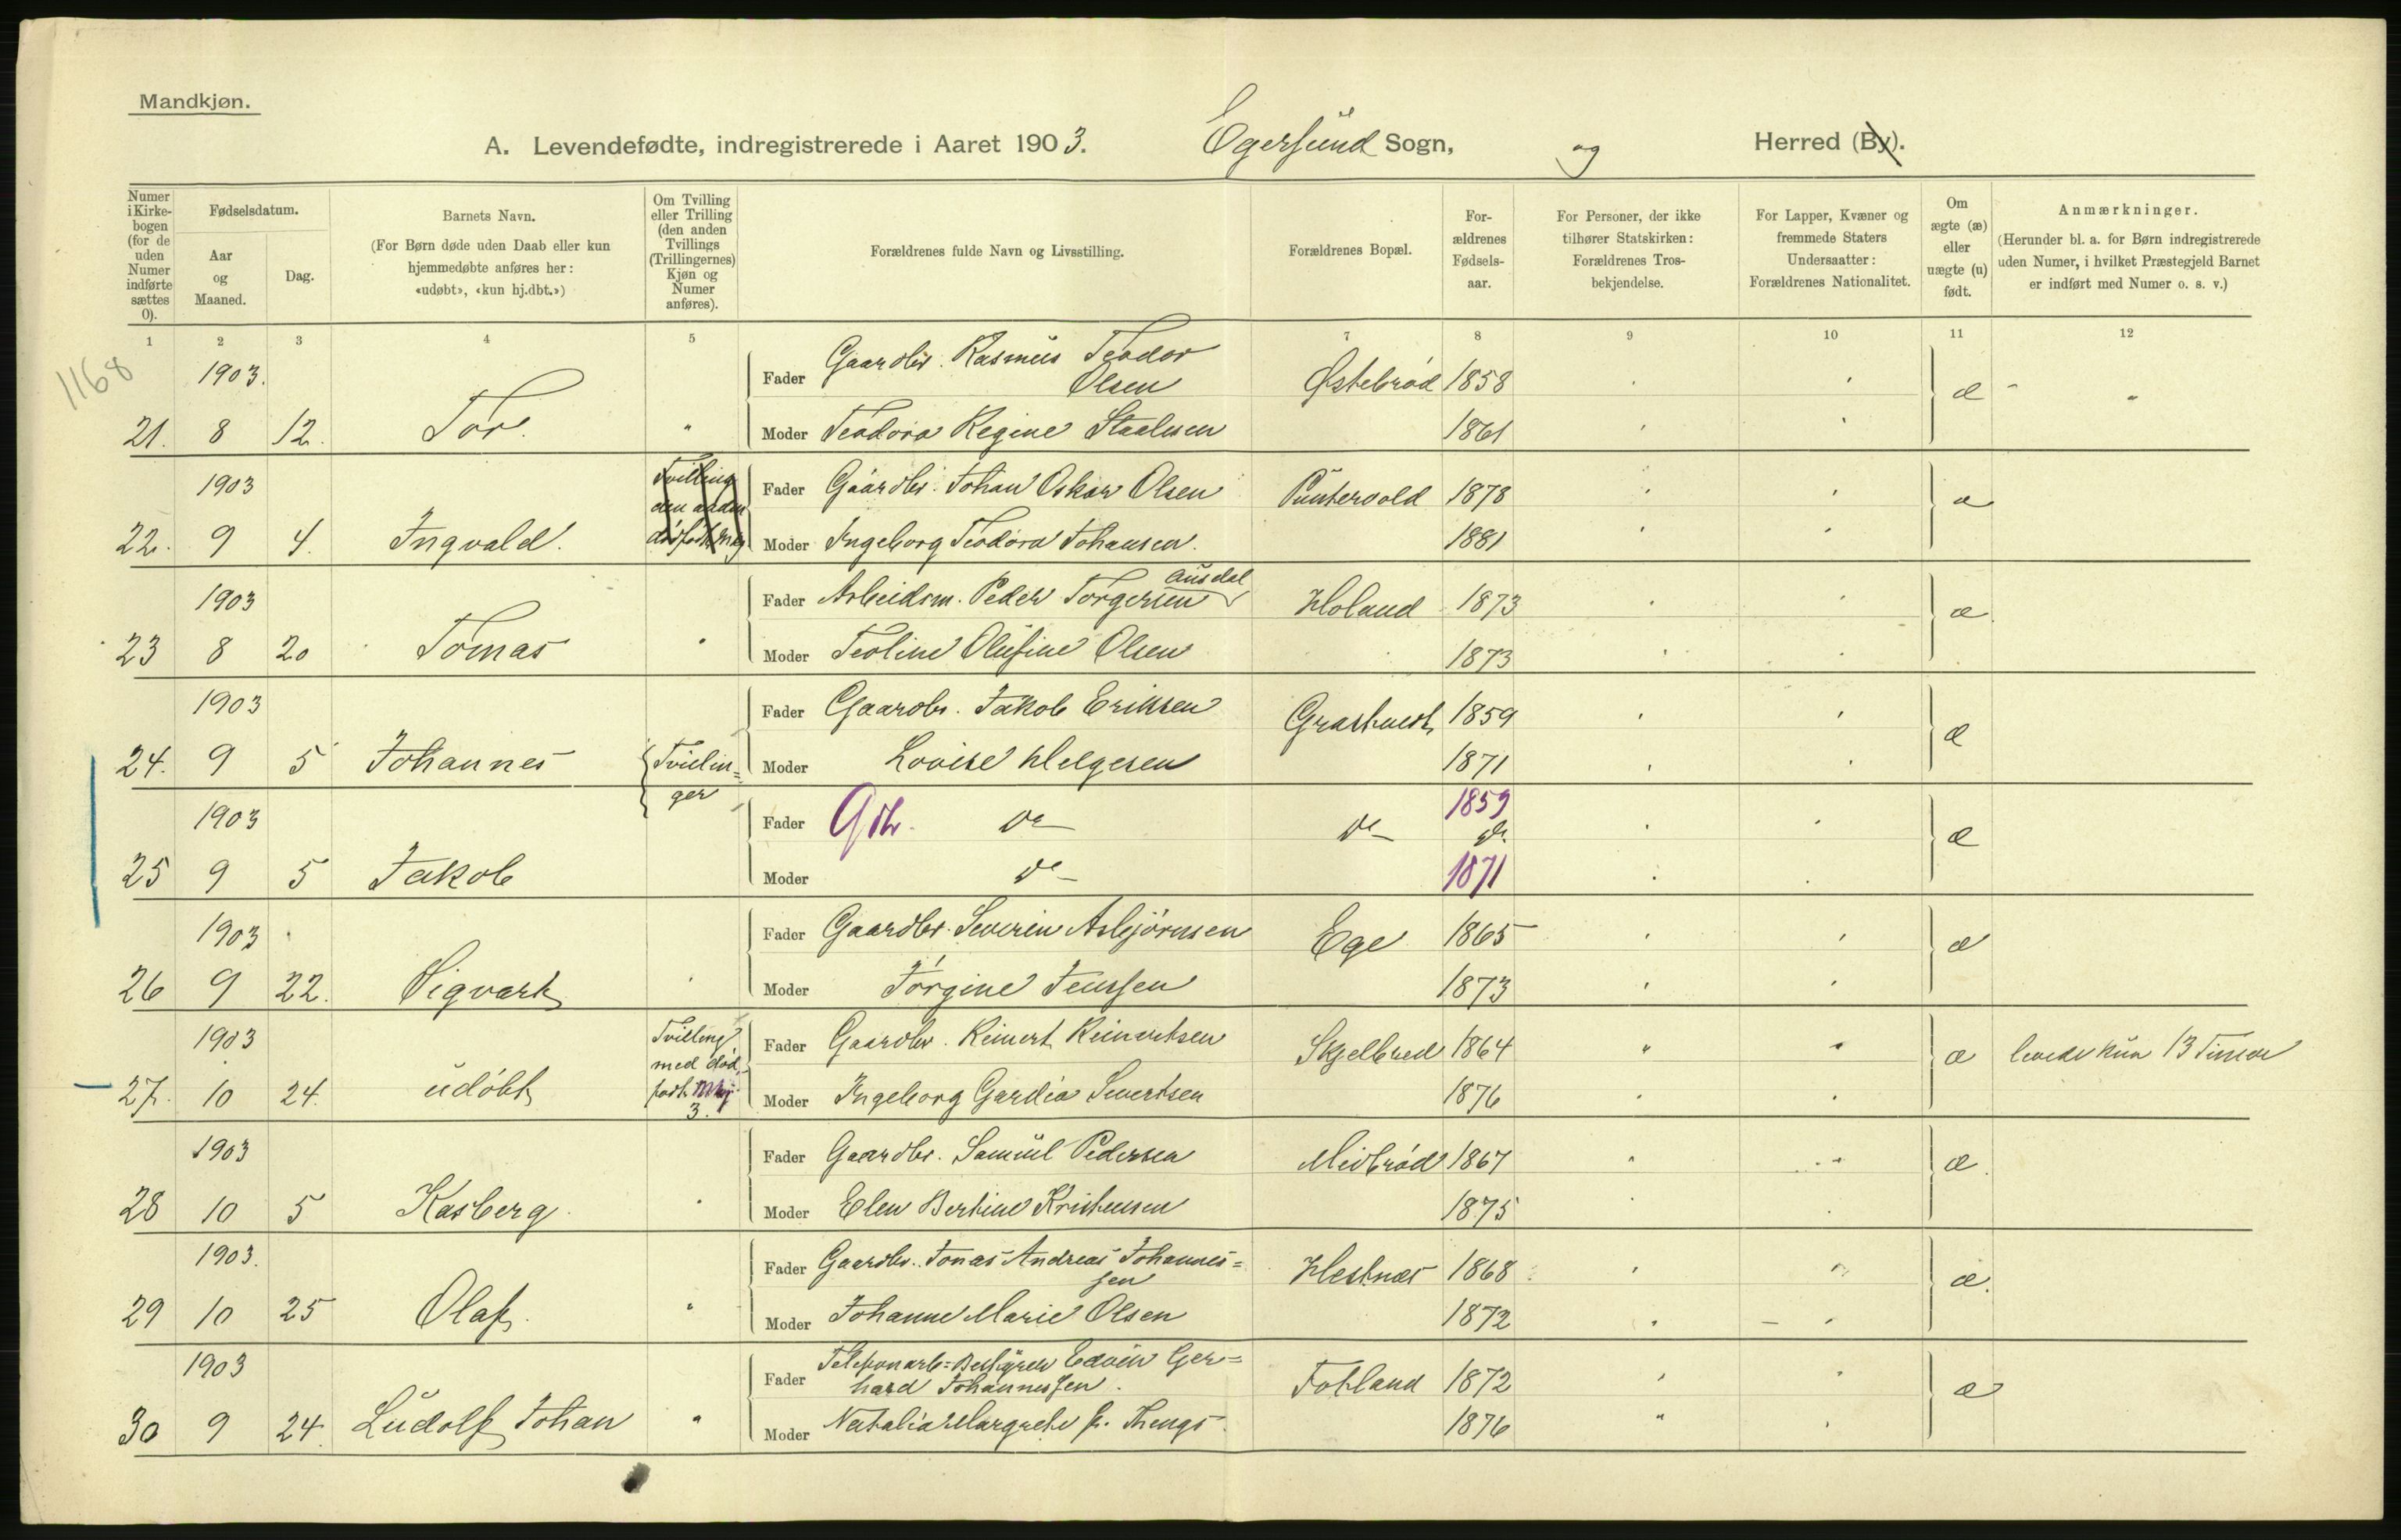 Mandkjøn.
A. Levendefødte, indregistrerede i Aaret 1903. Egersund Sogn, og Herred (By).
Numer i Kirkebogen (for de uden Numer indførte sættes 0).
Fødselsdatum.
Aar og Maaned.
Dag.
Barnets Navn.
(For Børn døde uden Daab eller kun hjemmedøbte anføres her: «udøbt», «kun hj.dbt.»)
Om Tvilling eller Trilling (den anden Tvillings (Trillingernes) Kjøn og Numer anføres).
Forældrenes fulde Navn og Livsstilling.
Forældrenes Bopæl.
For-ældrenes Fødsels-aar.
For Personer, der ikke tilhører Statskirken: Forældrenes Tros-bekjendelse.
For Lapper, Kvæner og fremmede Staters Undersaatter: Forældrenes Nationalitet.
Om ægte (æ) eller uægte (u) født.
Anmærkninger.
(Herunder bl. a. for Børn indregistrerede uden Numer, i hvilket Præstegjeld Barnet er indført med Numer o. s. v.)
1 2 3 4 5 7 8 9 10 11 12
1168
1903. Fader Gaardbr. Rasmus Teodor Olsen Østebrød 1858 æ
21. 8 12. Tor. " Moder Teodora Regine Staalesen 1861
1903 Tvilling den anden dødfødt Fader Gaardbr. Johan Oskar Olsen Puntervold 1878 æ
22. 9 4. Ingvald. Moder Ingeborg Teodora Johansen. 1881
1903 Fader Arbeidsm. Peder Torgersen Ausdal Holand 1873 æ.
23 8 20 Tomas Moder Teoline Olufine Olsen 1873
1903 Fader Gaardbr. Jakob Eriksen 1859 æ
24. 9 5 Johannes Tvillin= Moder Lovise Helgesen 1871
ger
1903 Fader Gbr. do do 1859 do æ
25 9 5 Jakob Moder do 1871
1903 Fader Gaardbr. Severin Asbjørnsen Ege 1865 æ
26 9 22. Sigvart Moder Jørgine Jenssen 1873
1903 Tvilling med død, født Mkj 3. Fader Gaardbr. Reinert Reinertsen Skjelbred 1864 " " æ levede kun 13 Timer
27. 10 24. udøbt Moder Ingeborg Gardia Sivertsen 1876
1903 Fader Gaardbr. Samuel Pedersen Meibrød 1867 " " æ.
28 10 5 Kasberg Moder Elen Bertine Kristensen 1875
1903. Fader Gaardbr. Jonas Andreas Johannes=sen Hestnes 1868 æ.
29 10 25 Olaf. " Moder Johanne Marie Olsen 1872
1903 Fader Telefonarb= Edvin Ger=hard Johannessen. Fotland 1872 æ
30 9 24. Ludolf Johan " Moder Natalia Margrete f. Thengs. 1876